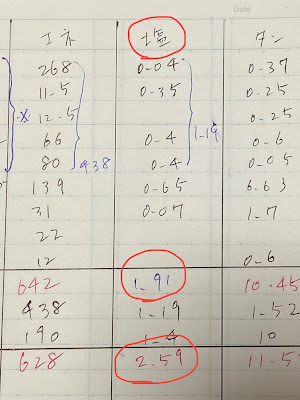 Date
エネ 塩 タン
268 0-04 0-37
11-5 0-35 0-25
12-5 0-25
66 0-4 0-6
80 438 0-4 1-19 0-05
139 0-65 6-63
31 0-07 1-7
22
12 0-6
642 1-91 10-45
438 1-19 1-52
190 1-4 10
628 2-59 11-5